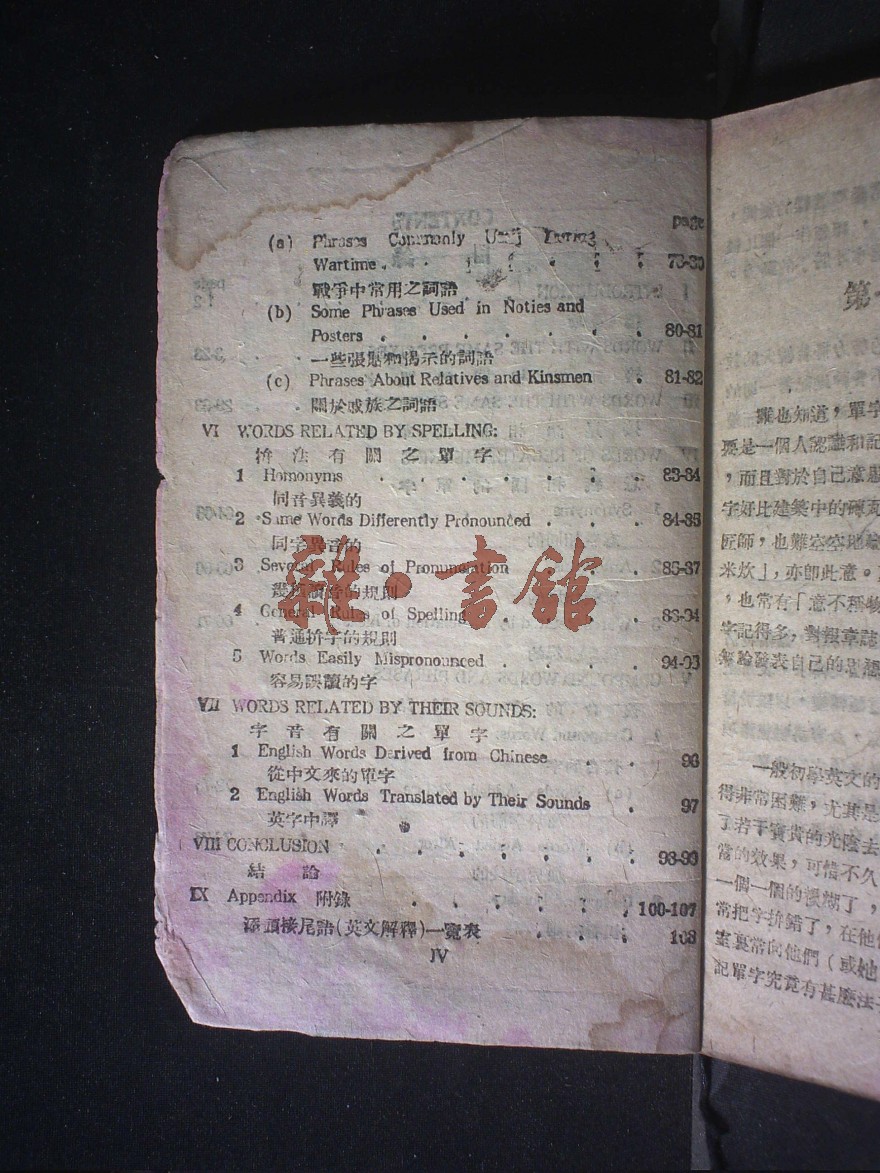 page
(a) Phrases Commonly Used During
Wartime . 78-80
戰爭中常用之詞語
(b) Some Phrases Used in Noties and
Posters . . . . . . . . . 80-81
一些張貼和揭示的詞語
(c) Phrases About Relatives and Kinsmen . 81-82
關於戚族之詞語
VI WORDS RELATED BY SPELLING:
拚法有關之單字
1 Homonyms . . . . . . . 83-84
同音異義的
2 Same Words Differently Pronounced . . . . 84-85
同字異音的
3 Several Rules of Pronunciation 85-87
的規則
4 General Rules of Spelling
普通拚字的規則
5 Words Easily Mispronounced . . . . .
容易誤讀的字
VII WORDS RELATED BY THEIR SOUNDS:
字音有關之單字
1 English Words Derived from Chinese . . 96
從中文來的單字
2 English Words Translated by Their Sounds . 97
英字中譯
VIII CONCLUSION . . . . . . . .
結論
IX Appendix 附錄 . . . . . . . 100-107
添頭接尾語(英文解釋)一覽表 . . . 108
IV
雜·書館
第
誰也知道,單字
要是一個人認識和記
,而且對於自己意思
字好比建築中的磚瓦
匠師,也難空空地
米炊」,亦卽此意。
,也常有「意不稱物
字記得多,對報章誌
發表自己的思想
一般初學英文的
得非常困難,尤其是
了若干寶貴的光陰去
常的效果,可惜不久
一個一個的模糊了,
常把字拚錯了,在他
室裏常向他們(或她
記單字究竟有甚麽法